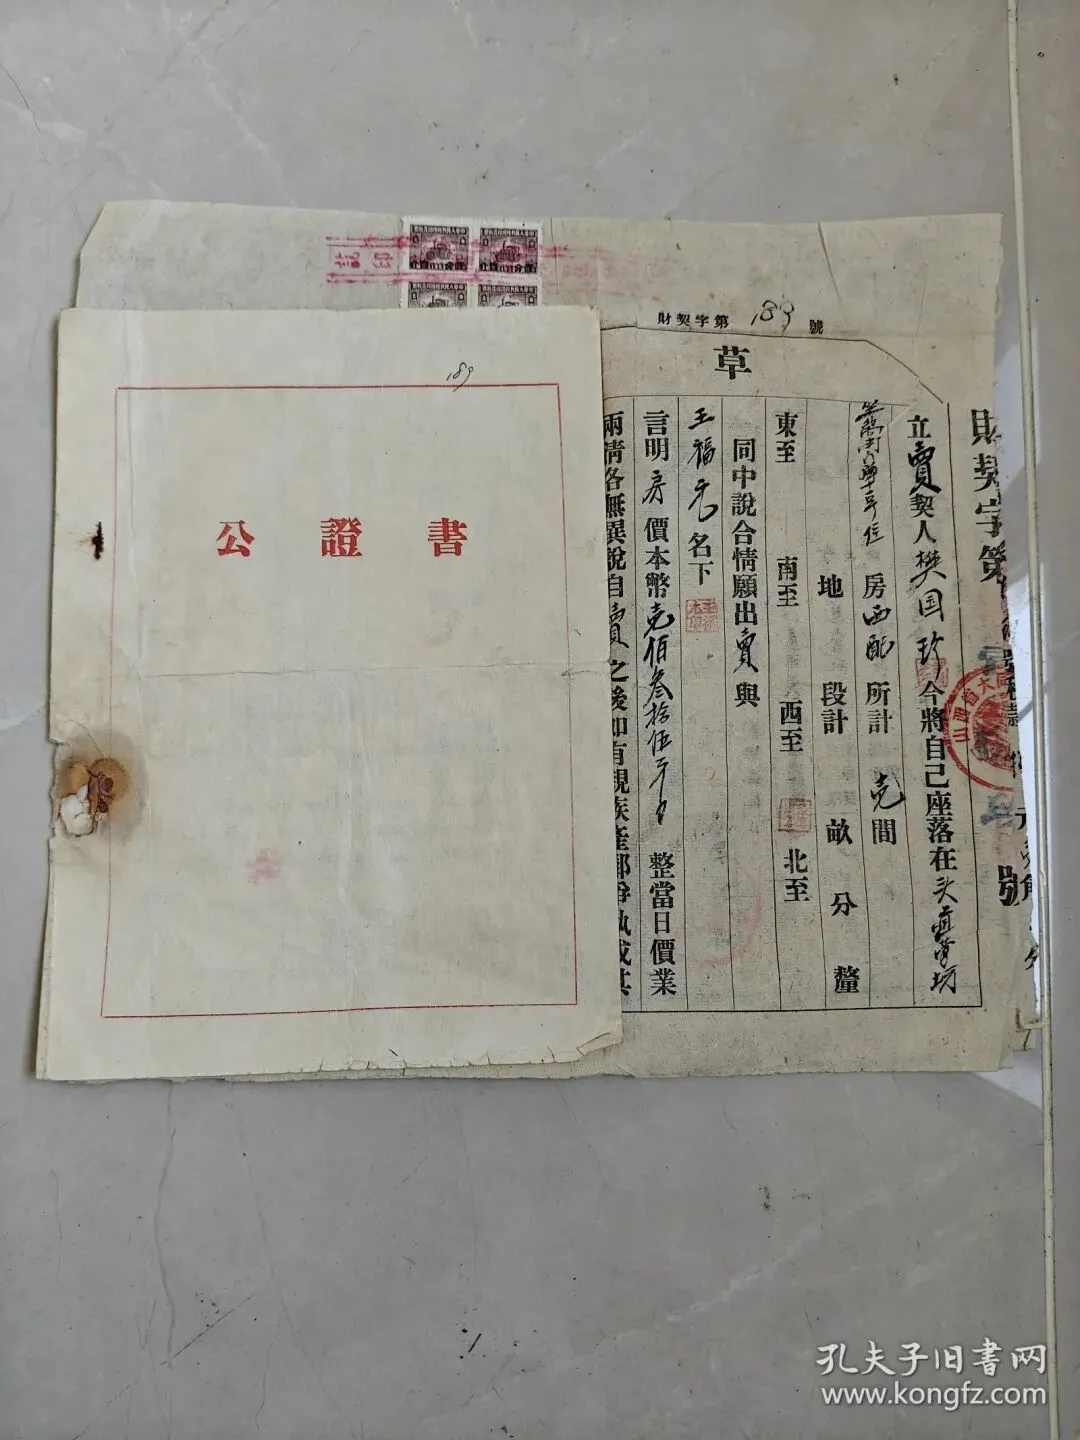 財契字第 189 號
草
財契字第
號
立賣契人樊国珍今將自己座落在头
房西配所計壱間
地段計畝分釐
東至 南至 西至 北至
同中說合情願出賣與
王福元名下
言明房價本幣壱佰叁拾伍 整當日價業
兩情各無異說自賣之後如有親族產鄰爭執或其
山西省大同
189
公證書
孔夫子旧書网
www.kongfz.com